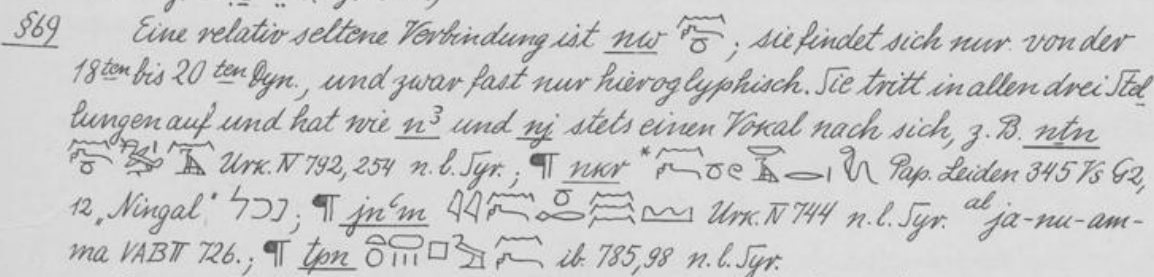 §69 Eine relativ seltene Verbindung ist nw ; sie findet sich nur von der
18ten bis 20ten Dyn., und zwar fast nur hieroglyphisch. Sie tritt in allen drei Stel
lungen auf und hat wie n3 und nj stets einen Vokal nach sich, z. B. ntn
Urk. IV 792, 254 n. l. Syr.; ¶ nkr * Pap. Leiden 345 Vs G2,
12 „Ningal“ ; ¶ jnʿm Urk. IV 744 n. l. Syr. al ja-nu-am-
ma VAB II 726.; ¶ tpn ib. 785,98 n. l. Syr.